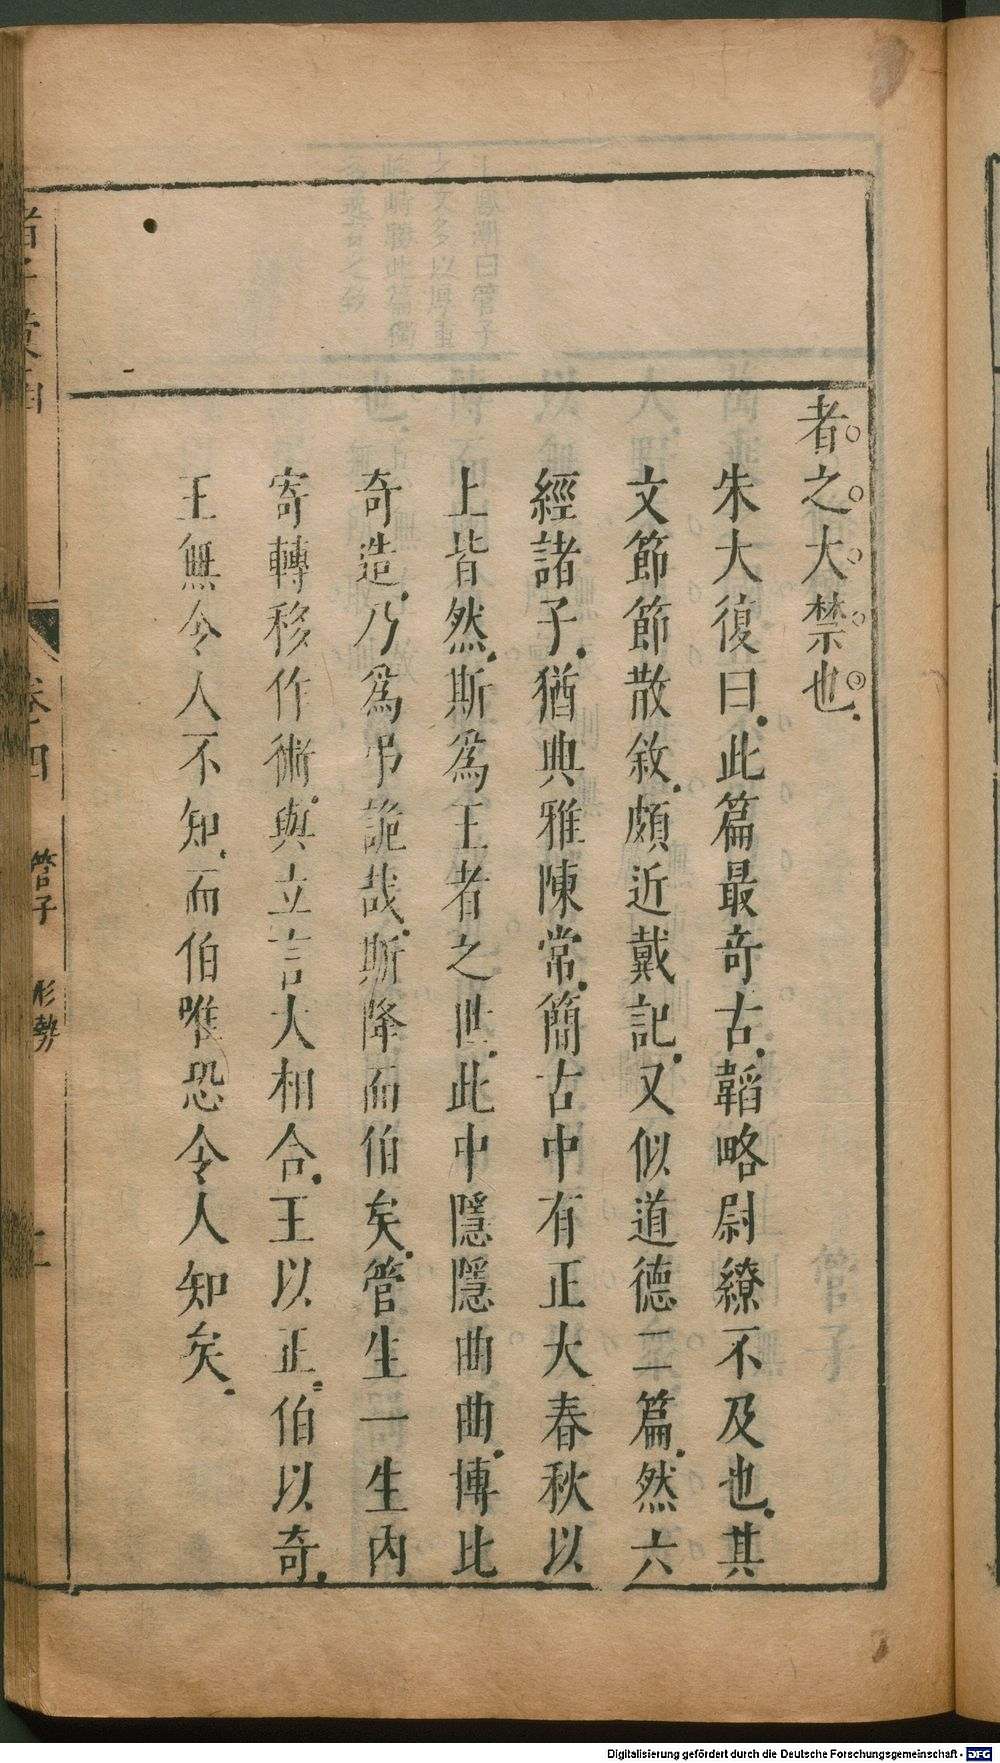 者之大禁也
朱大復曰此篇最奇古韜略尉繚不及也其
文節節散敘頗近戴記又似道德二篇然六
經諸子猶典雅陳常簡古中有正大春秋以
上皆然斯為王者之世此中隱隱曲曲博比
奇造乃為弔詭哉斯降而伯矣管生一生內
寄轉移作術與立言大相合王以正伯以奇
王無令人不知而伯唯恐令人知矣
卷四
管子
形勢
Digitalisierung gefördert durch die Deutsche Forschungsgemeinschaft - DFG